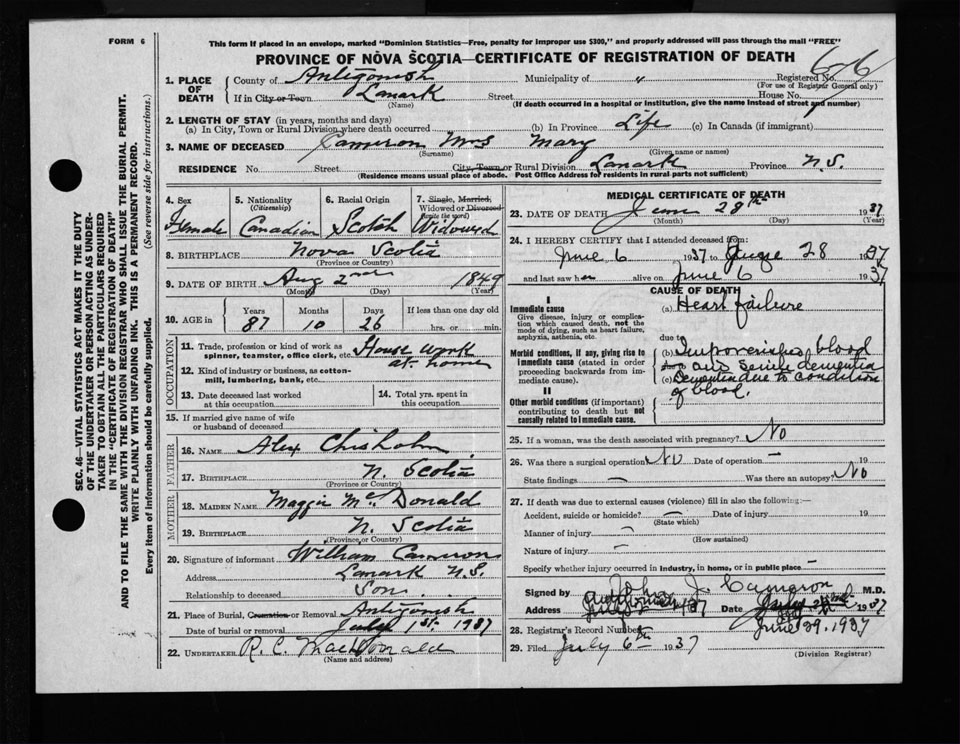 FORM 6
This form if placed in an envelope, marked "Dominion Statistics—Free, penalty for improper use $300," and properly addressed will pass through the mail "FREE"
PROVINCE OF NOVA SCOTIA—CERTIFICATE OF REGISTRATION OF DEATH
1. PLACE OF DEATH County of Antigonish Municipality of " Registered No.
(For use of Registrar General only)
If in City or Town Lanark Street House No.
(Name) (If death occurred in a hospital or institution, give the name instead of street and number)
2. LENGTH OF STAY (in years, months and days)
(a) In City, Town or Rural Division where death occurred (b) In Province Life (c) In Canada (if immigrant)
3. NAME OF DECEASED Cameron Mrs Mary
(Surname) (Given name or names)
RESIDENCE No. Street City, Town or Rural Division Lanark Province N.S.
(Residence means usual place of abode. Post Office Address for residents in rural parts not sufficient)
4. Sex Female
5. Nationality (Citizenship) Canadian
6. Racial Origin Scotch
7. Single, Married, Widowed or Divorced (write the word) Widowed
8. BIRTHPLACE Nova Scotia
(Province or Country)
9. DATE OF BIRTH Aug 2nd 1849
(Month) (Day) (Year)
10. AGE in Years 87 Months 10 Days 26 If less than one day hrs. or min.
OCCUPATION
11. Trade, profession or kind of work as spinner, teamster, office clerk, etc. House work at home
12. Kind of industry or business, as cotton-mill, lumbering, bank, etc.
13. Date deceased last worked at this occupation
14. Total yrs. spent in this occupation
15. If married give name of wife or husband of deceased
FATHER
16. NAME Alex Chisholm
17. BIRTHPLACE N. Scotia
(Province or Country)
MOTHER
18. MAIDEN NAME Maggie McDonald
19. BIRTHPLACE N. Scotia
(Province or Country)
20. Signature of informant William Cameron
Address Lanark N.S.
Relationship to deceased Son
21. Place of Burial, Cremation or Removal Antigonish
Date of burial or removal July 1st. 1937
22. UNDERTAKER R. C. MacDonald
(Name and address)
MEDICAL CERTIFICATE OF DEATH
23. DATE OF DEATH June 28th 1937
(Month) (Day)
24. I HEREBY CERTIFY that I attended deceased from:
June 6 1937 to June 28 1937
and last saw her alive on June 6 1937
CAUSE OF DEATH
I
Immediate cause
Give disease, injury or complication which caused death, not the mode of dying, such as heart failure, asphyxia, asthenia, etc.
(a) Heart failure
due to
Morbid conditions, if any, giving rise to immediate cause (stated in order proceeding backwards from immediate cause).
(b) blood
and senile dementia
(c) Dementia due to condition
of blood.
II
Other morbid conditions (if important) contributing to death but not causally related to immediate cause.
25. If a woman, was the death associated with pregnancy? No
26. Was there a surgical operation No Date of operation — 19
State findings — Was there an autopsy? No
27. If death was due to external causes (violence) fill in also the following:—
Accident, suicide or homicide? — Date of injury 19
(State which)
Manner of injury —
(How sustained)
Nature of injury —
Specify whether injury occurred in industry, in home, or in public place —
Signed by John J. Cameron M.D.
Address Date 1937
June 29. 1937
28. Registrar's Record Number
29. Filed July 6th 1937
(Division Registrar)
SEC. 46—VITAL STATISTICS ACT MAKES IT THE DUTY
OF THE UNDERTAKER OR PERSON ACTING AS UNDER-
TAKER TO OBTAIN ALL THE PARTICULARS REQUIRED
IN THE "CERTIFICATE OF REGISTRATION OF DEATH"
AND TO FILE THE SAME WITH THE DIVISION REGISTRAR WHO SHALL ISSUE THE BURIAL PERMIT.
WRITE PLAINLY WITH UNFADING INK. THIS IS A PERMANENT RECORD.
Every item of information should be carefully supplied. (See reverse side for instructions.)